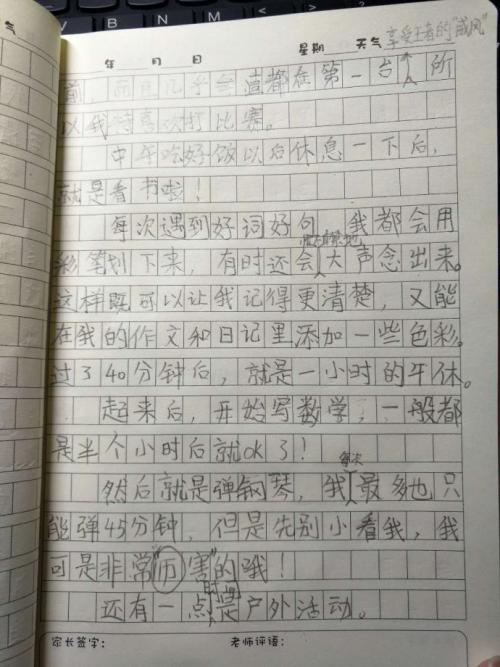 气
年 月 日 星期 天气 享受王者的"威风"
前，而且几乎每道都在第一台，所
以我特喜欢打比赛。
中午吃好饭以后休息一下后，
就是看书啦！
每次遇到好词好句，我都会用
彩笔划下来，有时还会大声念出来。
这样既可以让我记得更清楚，又能
在我的作文和日记里添加一些色彩。
过了40分钟后，就是一小时的午休。
起来后，开始写数学，一般都
是半个小时后就ok了！
每次
然后就是弹钢琴，我最多也只
能弹45分钟，但是先别小看我，我
可是非常"历害"的哦！
时间
还有一点是户外活动。
家长签字： 老师评语：